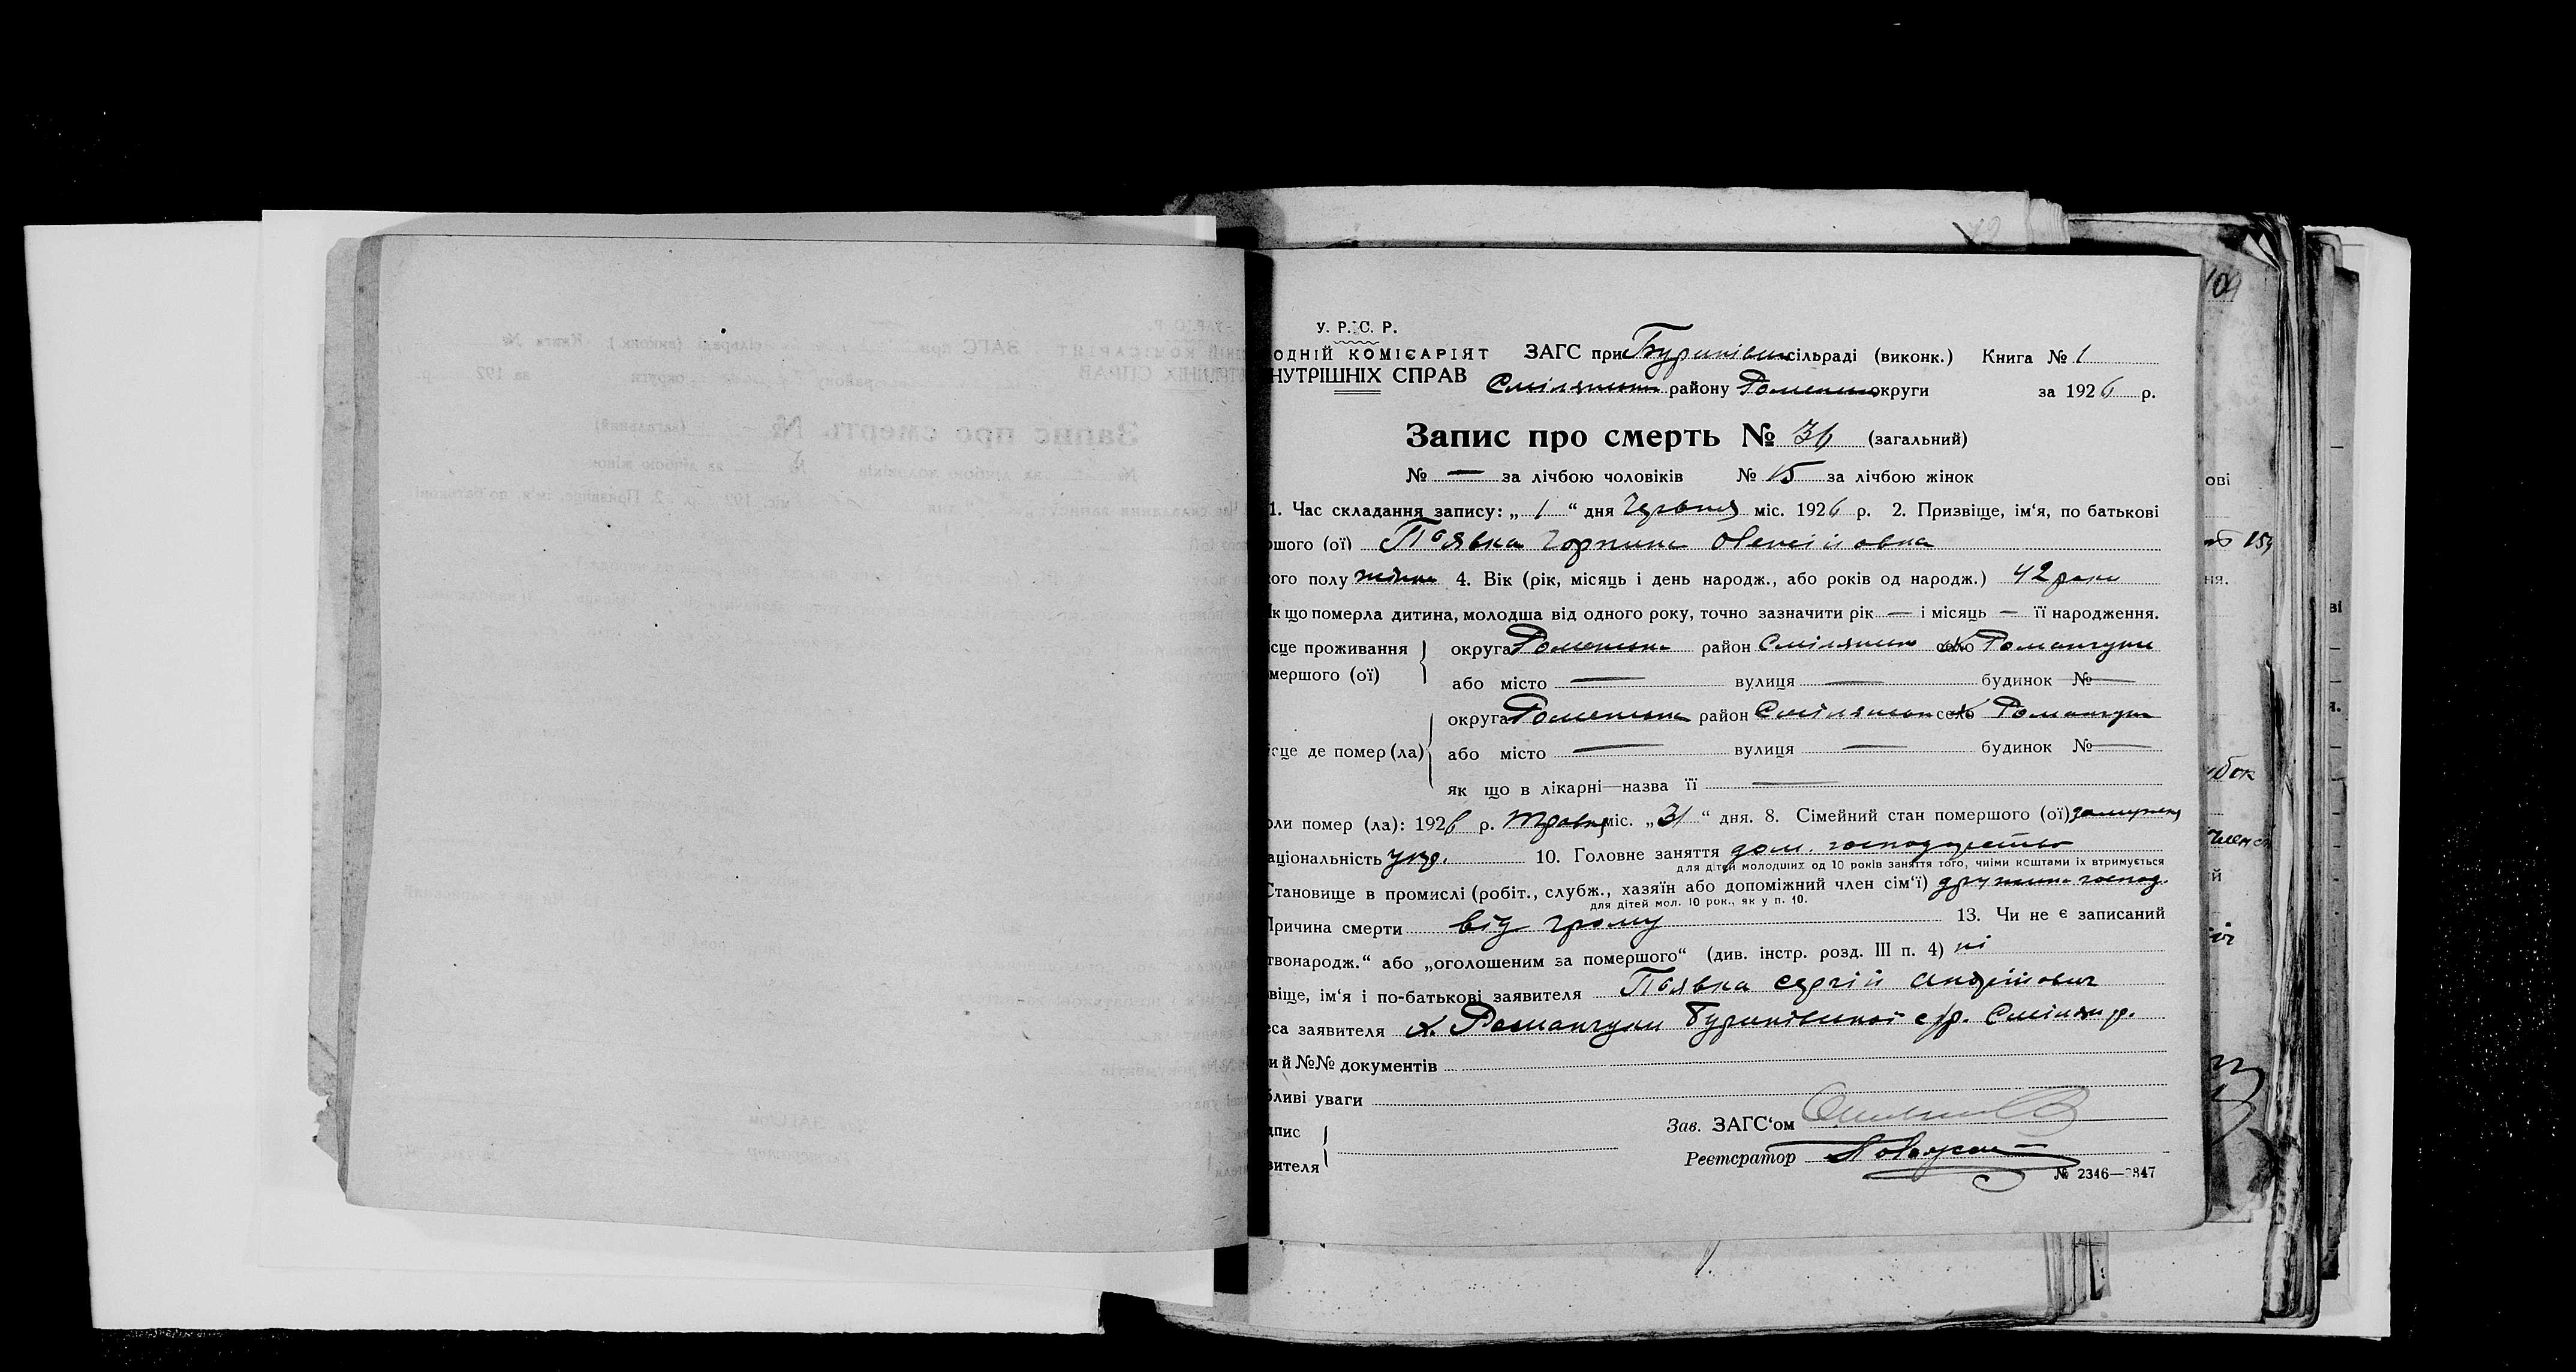 У. Р. С. Р.
ОДНІЙ КОМІСАРІЯТ ЗАГС при сільраді (виконк.) Книга № 1
НУТРІШНІХ СПРАВ району округи за 1926 р.
Запис про смерть № 36 (загальний)
№ — за лічбою чоловіків № 15 за лічбою жінок
1. Час складання запису: „ 1 “ дня Червня міс. 1926 р. 2. Призвіще, ім‘я, по батькові
ршого (ої) Горпина Олексіївна
кого полу жіноч 4. Вік (рік, місяць і день народж., або років од народж.) 42 роки
Як що померла дитина, молодша від одного року, точно зазначити рік — і місяць — її народження.
ісце проживання округа Роменська район село Романчуки
мершого (ої)
або місто — вулиця — будинок № —
округа Роменська район село Романчуки
ісце де помер (ла) або місто — вулиця — будинок № —
як що в лікарні—назва її —
оли помер (ла): 1926 р. Травня міс. „31“ дня. 8. Сімейний стан помершого (ої) замужня
аціональність укр. 10. Головне заняття дом. господарство
для дітей молодших од 10 років заняття того, чиїми коштами їх втримується
Становище в промислі (робіт., служб., хазяїн або допоміжний член сім‘ї) дружина господ.
для дітей мол. 10 рок., як у п. 10.
Причина смерти від грому 13. Чи не є записаний
твонародж.“ або „оголошеним за помершого“ (див. інстр. розд. III п. 4) ні
віще, ім‘я і по-батькові заявителя Сергій Андрійович
еса заявителя х. Романчуки с/р. р.
и й №№ документів
бливі уваги
Зав. ЗАГС‘ом
дпис
вителя
Реєстратор
№ 2346—2347